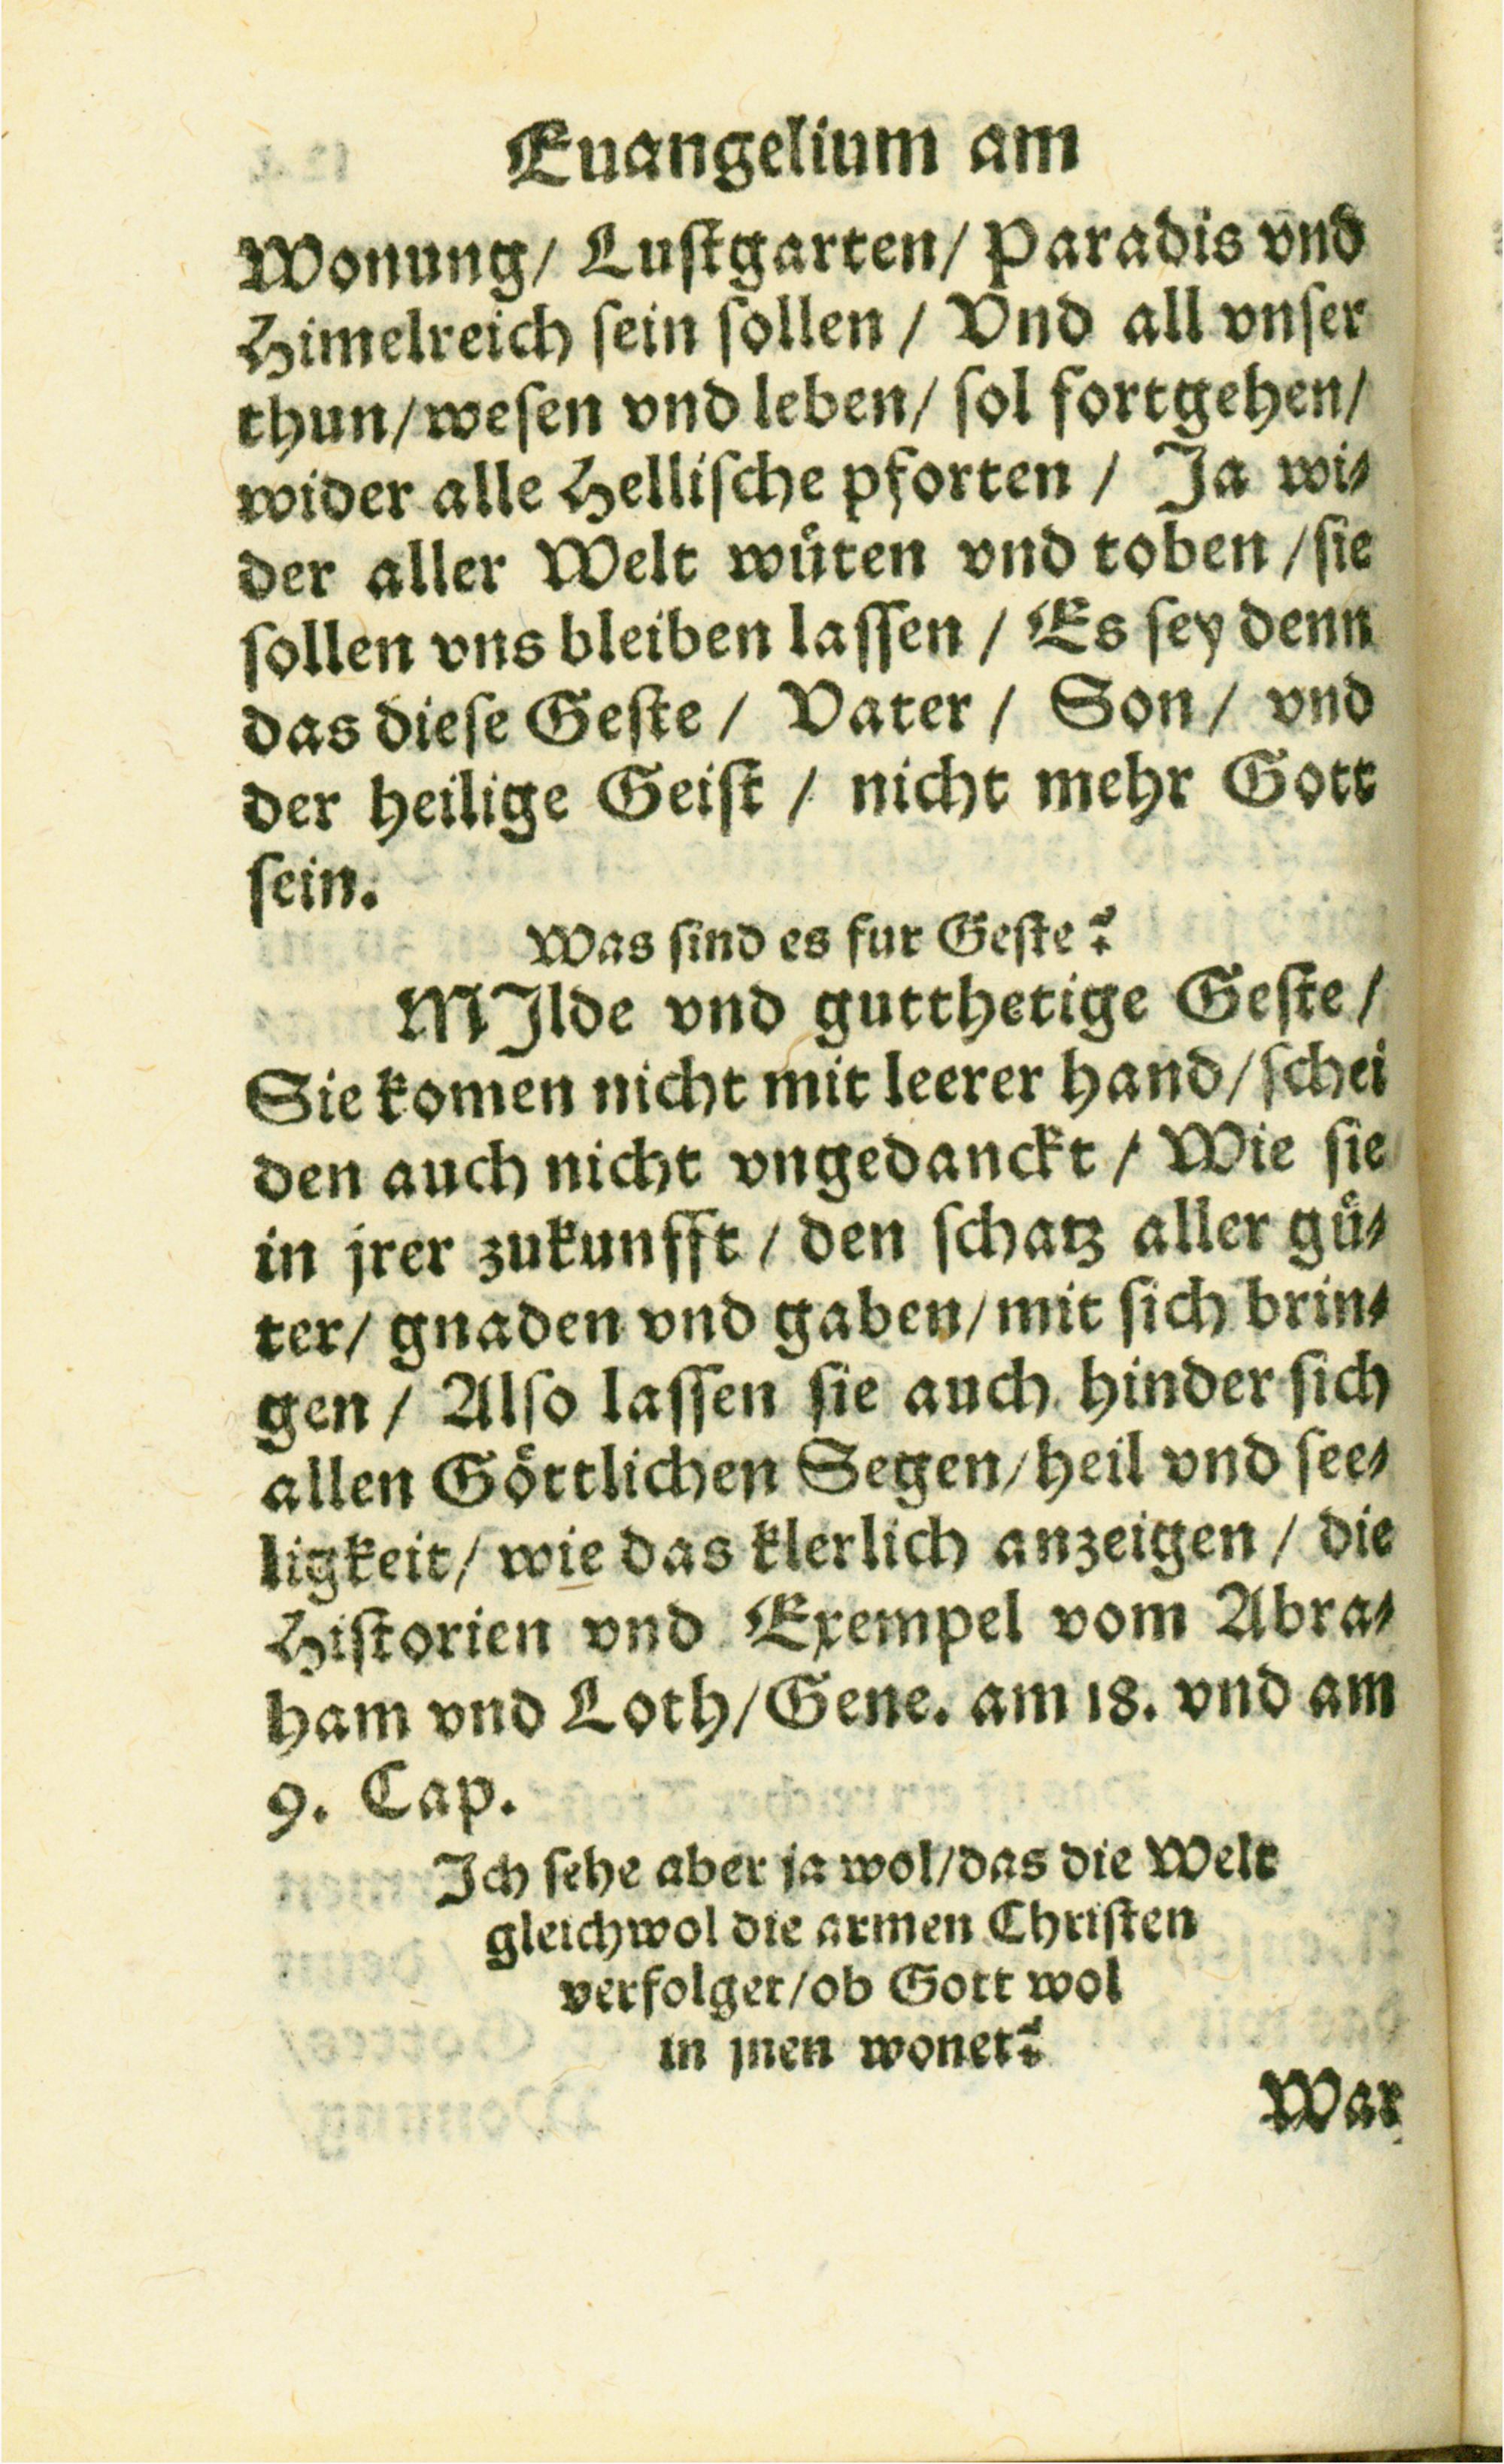 Euangelium am
Wonung/ Luſtgarten/ Paradis vnd
Himelreich ſein ſollen / Vnd all vnſer
thun/weſen vnd leben/ ſol fortgehen/
wider alle Helliſche pforten / Ja wi⸗
der aller Welt wuͤten vnd toben /ſie
ſollen vns bleiben laſſen / Es ſey denn
das dieſe Geſte / Vater / Son / vnd
der heilige Geiſt / nicht mehr Gott
ſein.
Was ſind es fur Geſte?
MJlde vnd gutthetige Geſte /
Sie komen nicht mit leerer hand/ſchei
den auch nicht vngedanckt / Wie ſie
in jrer zukunfft / den ſchatz aller guͤ⸗
ter/ gnaden vnd gaben/mit ſich brin⸗
gen / Alſo laſſen ſie auch hinder ſich
allen Goͤttlichen Segen/heil vnd ſee⸗
ligkeit/ wie das klerlich anzeigen / die
Hiſtorien vnd Exempel vom Abra⸗
ham vnd Loth/Gene. am 18. vnd am
9. Cap.
Jch ſehe aber ja wol/das die Welt
gleichwol die armen Chriſten
verfolget/ob Gott wol
in jnen wonet?
War